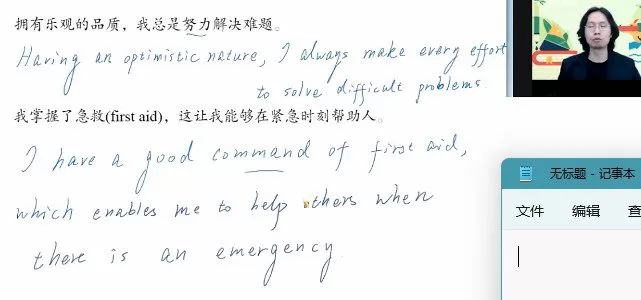 拥有乐观的品质，我总是努力解决难题。
Having an optimistic nature, I always make every effort
to solve difficult problems.
我掌握了急救(first aid)，这让我能够在紧急时刻帮助人。
I have a good command of first aid,
which enables me to help others when
there is an emergency.
无标题 - 记事本
文件 编辑 查